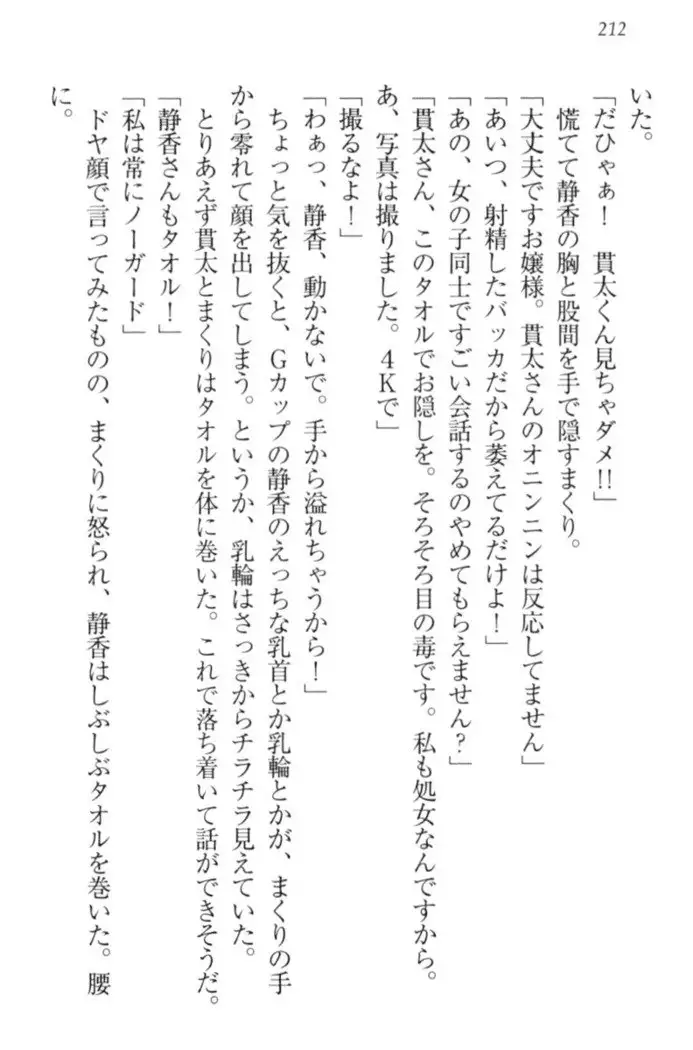 212
いた。
「だひゃぁ！　貫太くん見ちゃダメ!!」
慌てて静香の胸と股間を手で隠すまくり。
「大丈夫ですお嬢様。貫太さんのオニンニンは反応してません」
「あいつ、射精したバッカだから萎えてるだけよ！」
「あの、女の子同士ですごい会話するのやめてもらえません？」
「貫太さん、このタオルでお隠しを。そろそろ目の毒です。私も処女なんですから。
あ、写真は撮りました。4Kで」
「撮るなよ！」
「わぁっ、静香、動かないで。手から溢れちゃうから！」
ちょっと気を抜くと、Gカップの静香のえっちな乳首とか乳輪とかが、まくりの手
から零れて顔を出してしまう。というか、乳輪はさっきからチラチラ見えていた。
とりあえず貫太とまくりはタオルを体に巻いた。これで落ち着いて話ができそうだ。
「静香さんもタオル！」
「私は常にノーガード」
ドヤ顔で言ってみたものの、まくりに怒られ、静香はしぶしぶタオルを巻いた。腰
に。